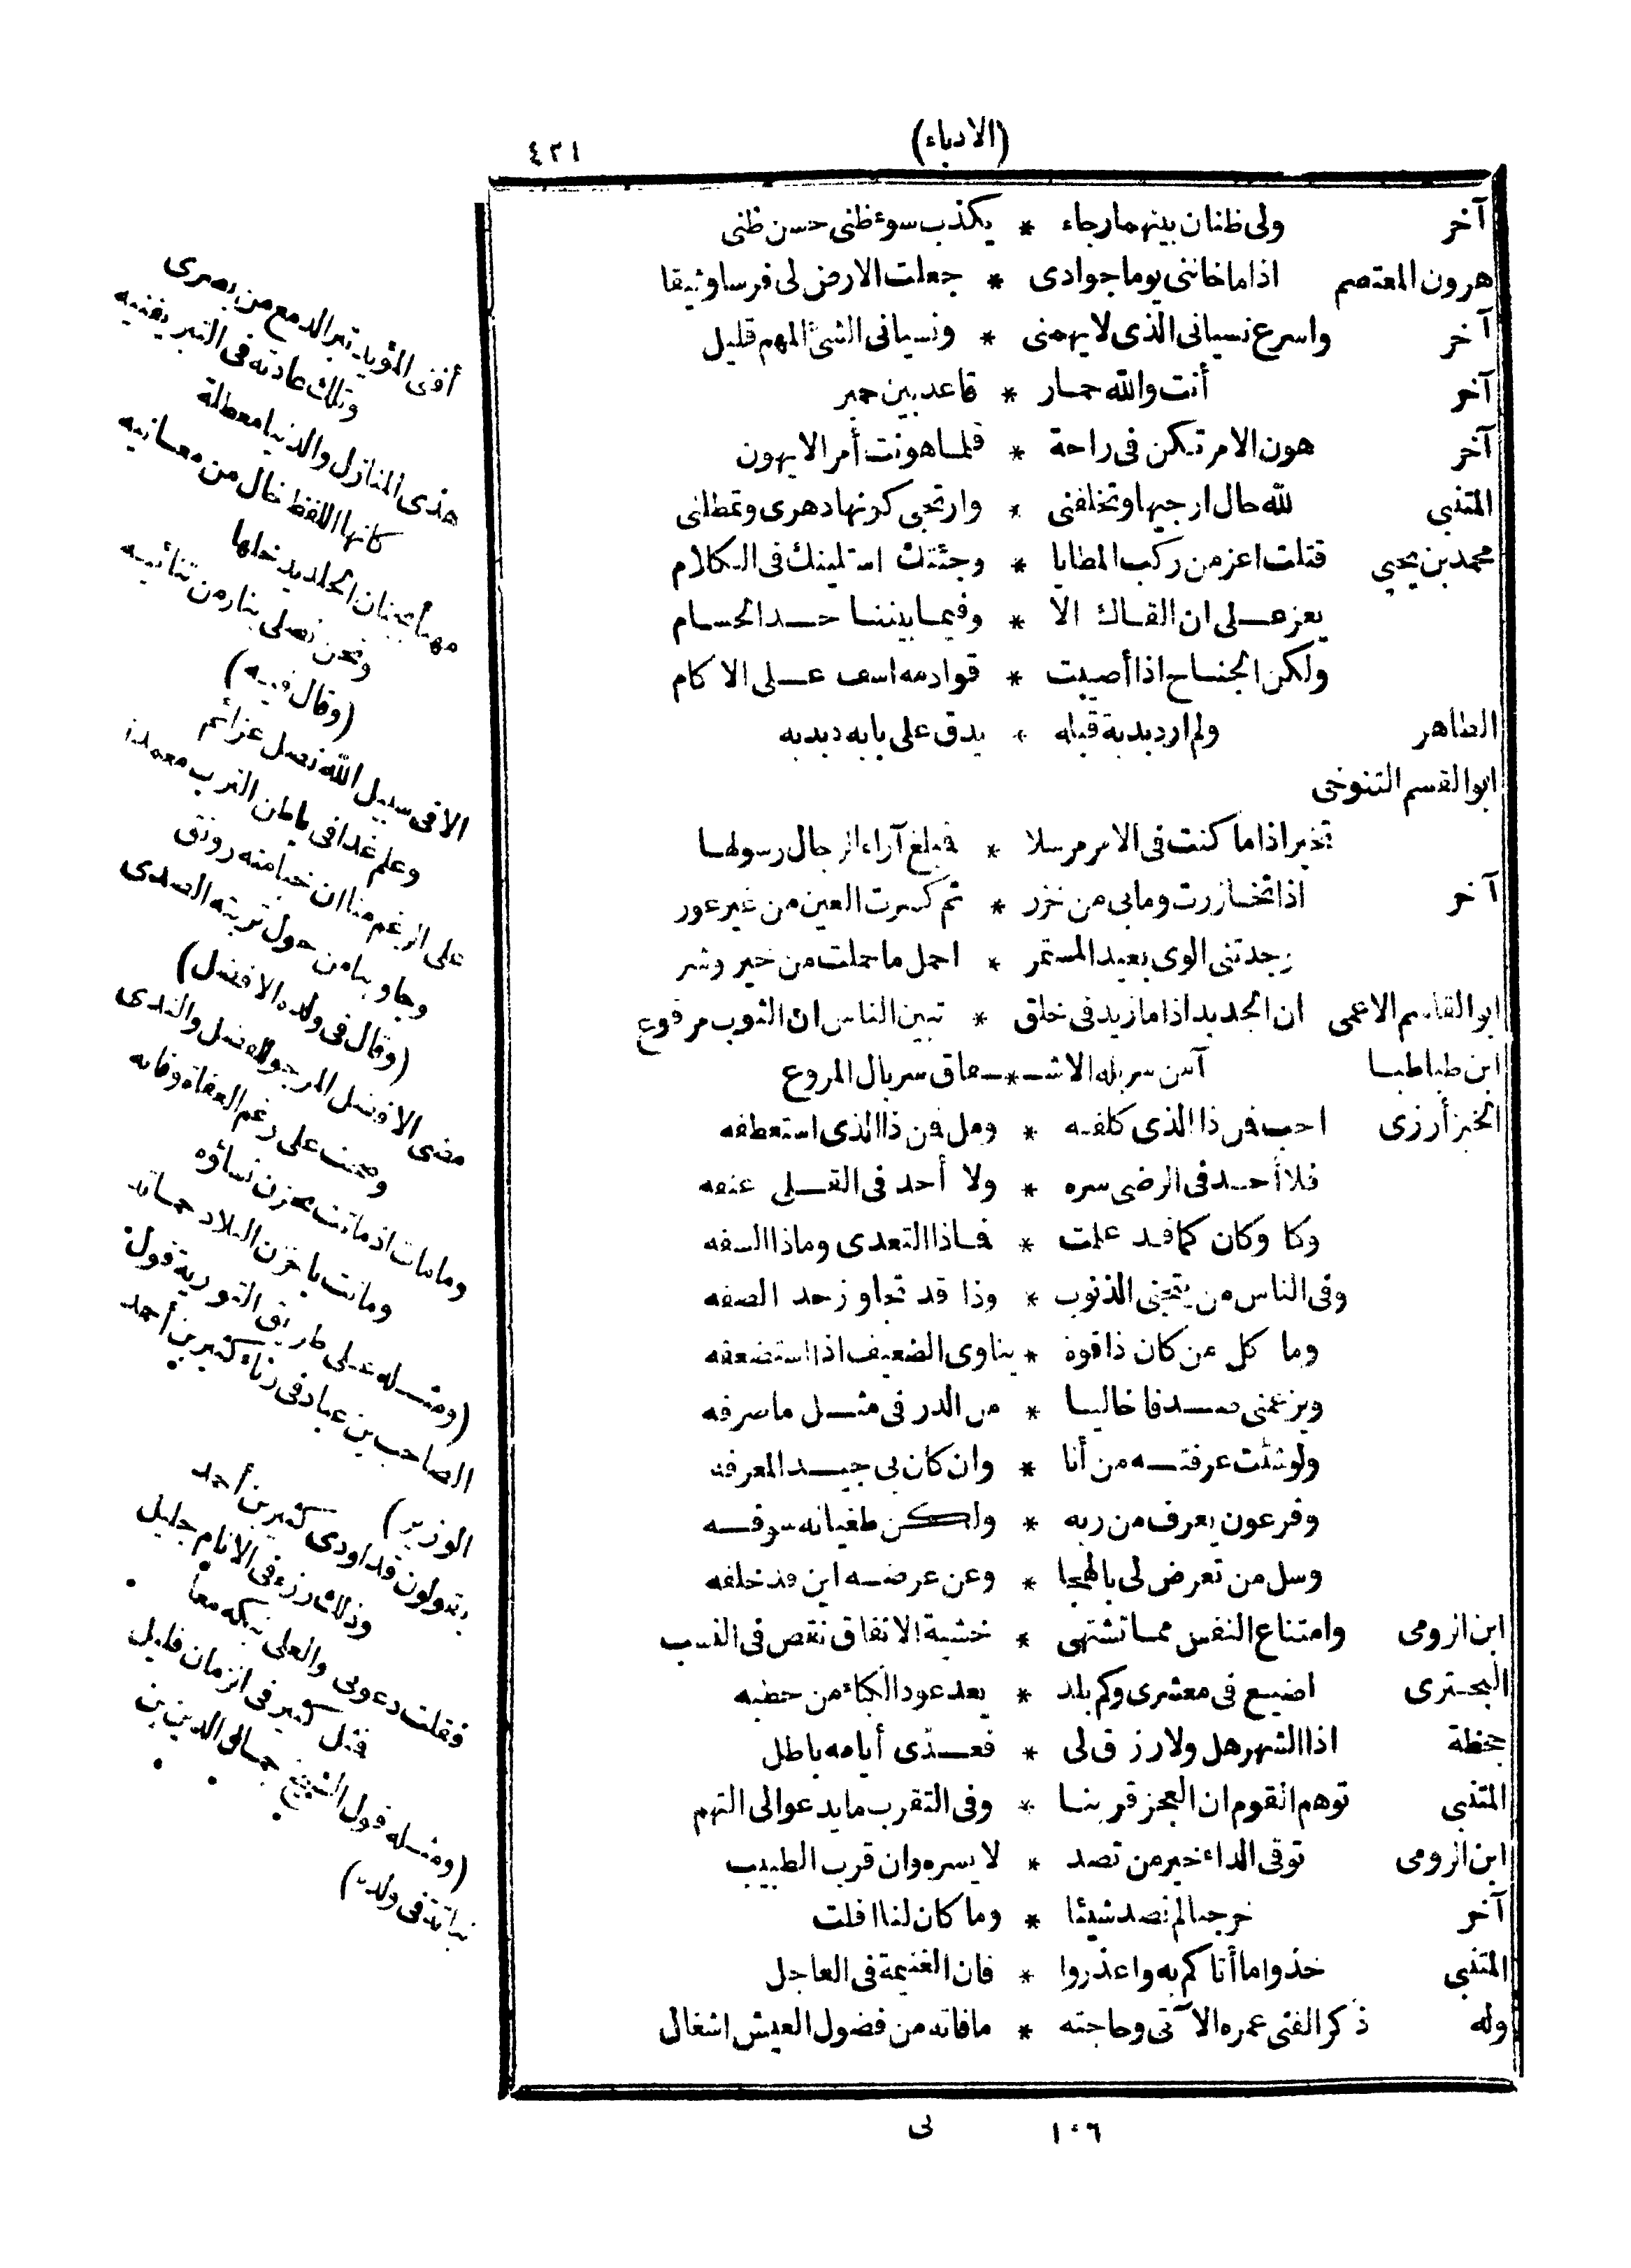 (الادباء)
٤٢١
آخر ولى ظنان بينهما رجاء * يكذب سوء ظنى حسن ظنى
هرون المعتصم اذا ما خاننى يوما جوادى * جعلت الارض لى فرسا وثيقا
آخر واسرع نسيانى الذى لا يهمنى * ونسيانى الشئ المهم قليل
آخر أنت والله حمار * قاعد بين حمير
آخر هون الامر تكن فى راحة * قلما هونت أمر الا يهون
المتنبى لله حال ارجيها وتخلفنى * وارتجى كونها دهرى وتمطلنى
محمد بن يحيى قتلت اعز من ركب المطايا * وجئتك استلينك فى الكلام
يعز على ان القاك الا * وفيما بيننا حد الحسام
ولكن الجناح اذا أصيبت * قوادمه اسف على الاكام
الطاهر ولم ار دبدبة قبله * يدق على بابه دبدبه
ابو القسم التنوخى
تخير اذا ما كنت فى الامر مرسلا * فبلغ آراء الرجال رسولها
آخر اذا تخازرت وما بى من خزر * ثم كسرت العين من غير عور
وجدتنى الوى بعيد المستمر * احمل ما حملت من خير وشر
ابو القاسم الاعمى ان الجديد اذا ما زيد فى خلق * تبين الناس ان الثوب مرفوع
ابن طباطبا آمن سربله الاشـ * ـفاق سربال المروع
الخبز أرزى احب فن ذا الذى كلفه * ومل فن ذا الذى استعطفه
فلا أحد فى الرضى سره * ولا أحد فى القلى عنفه
وكنا وكان كما قد علمت * فماذا التعدى وماذا السفه
وفى الناس من يتجنى الذنوب * وذا قد تجاوز حد الصفه
وما كل من كان ذا قوة * يناوى الضعيف اذا استضعفه
ويزعمنى صدفا خاليا * من الدر فى مثل ما صرفه
ولو شئت عرفته من أنا * وان كان بى جيد المعرفه
وفرعون يعرف من ربه * ولكن طغيانه سوفه
وسل من تعرض لى بالهجا * وعن عرضه اين قد خلفه
ابن الرومى وامتناع النفس مما تشتهى * خشية الانفاق نقص فى النسب
البحترى اضيع فى معشرى وكم بلد * يعد عود الكباء من حطبه
جحظة اذا الشهر هل ولا رزق لى * فعدى أيامه باطل
المتنبى توهم القوم ان العجز قربنا * وفى التقرب ما يدعو الى التهم
ابن الرومى توقى الداء خير من تصد * لا يسره وان قرب الطبيب
آخر خرجنا لم نصد شيئا * وما كان لنا افلت
المتنبى خذوا ما أتاكم به واعذروا * فان الغنيمة فى العاجل
وله ذكر الفتى عمره الآتى وحاجته * ما فاته من فضول العيش اشغال
أفنى المؤيد تبر الدمع من بصرى
وتلك عادته فى التبر يفنيه
هذى المنازل والدنيا معطلة
كانها اللفظ خال من معانيه
مهنأ بجنان الخلد يدخلها
ونحن نصلى بنار من تنائيه
(وقال فيه)
الا فى سبيل الله نصل عزائم
وعلم غدا فى باطن الترب مغمدا
على الرغم منا ان خبا منه رونق
وجاوبنا من حول تربته الصدى
(وقال فى ولده الافضل)
مضى الافضل المرجو للفضل والندى
وصحت على رغم العفاة وفاته
وما مات اذ ماتت بحزن نساؤه
وماتت باحزان البلاد حماته
(ومثله على طريق التورية قول
الصاحب بن عباد فى رثاء كثير بن أحمد
الوزير)
يقولون قد اودى كثير بن أحمد
وذلك رزء فى الانام جليل
فقلت دعونى والعلى نبكه معا
فمثل كثير فى الزمان قليل
(ومثله قول الشيخ جمال الدين بن
نباتة فى ولده)
١٠٦ لى